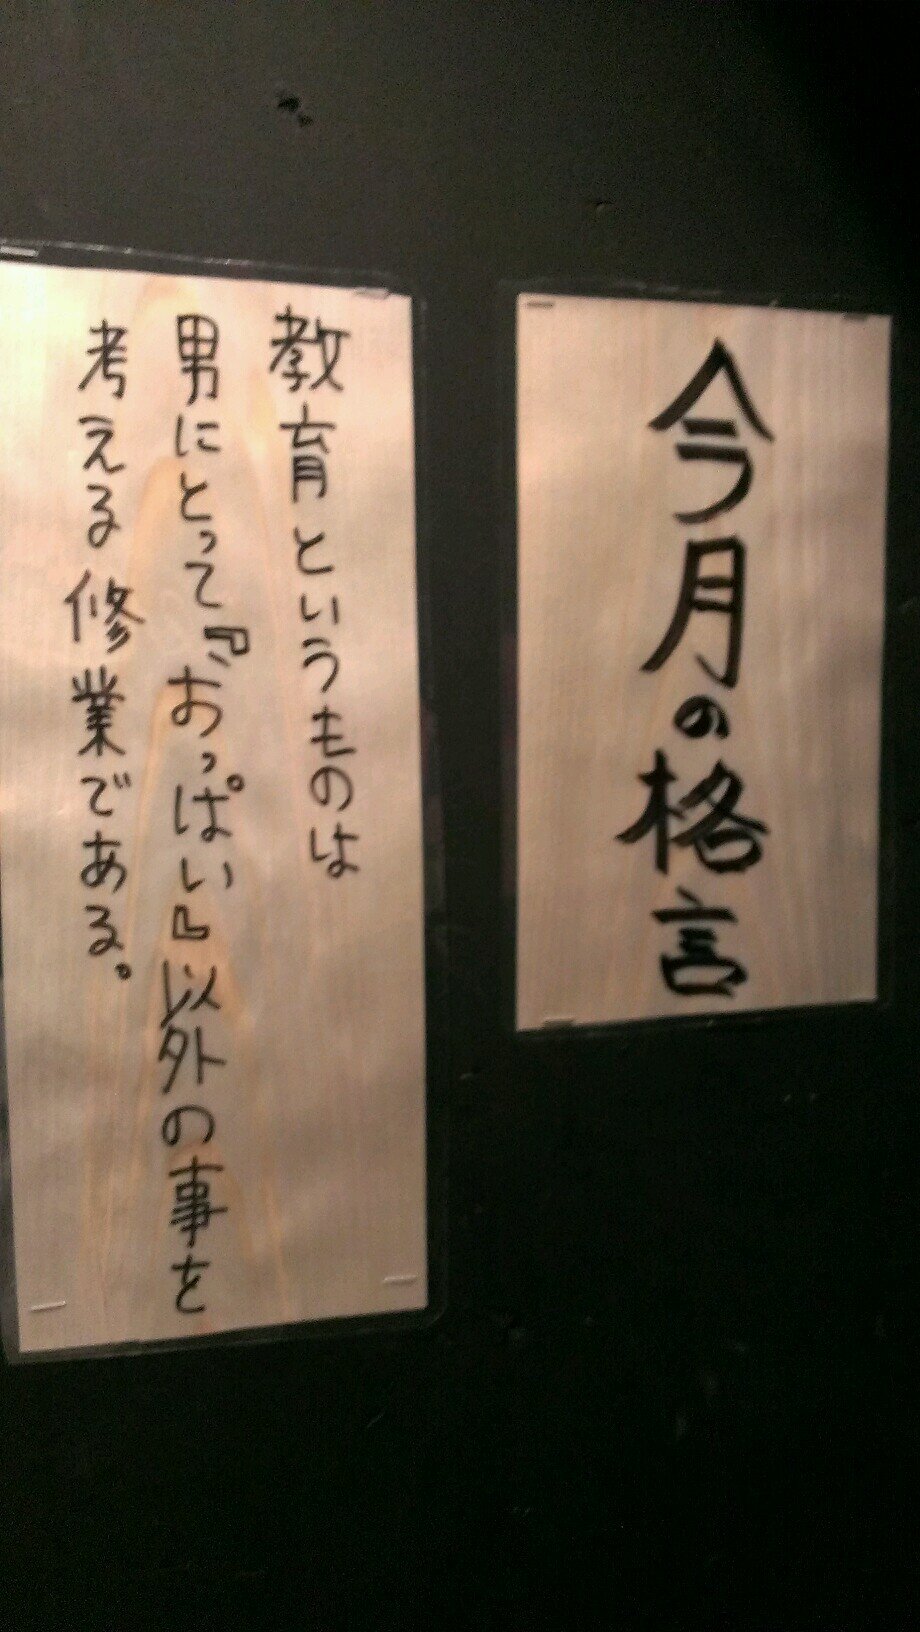 今月の格言
教育というものは
男にとって『おっぱい』以外の事を
考える修業である。